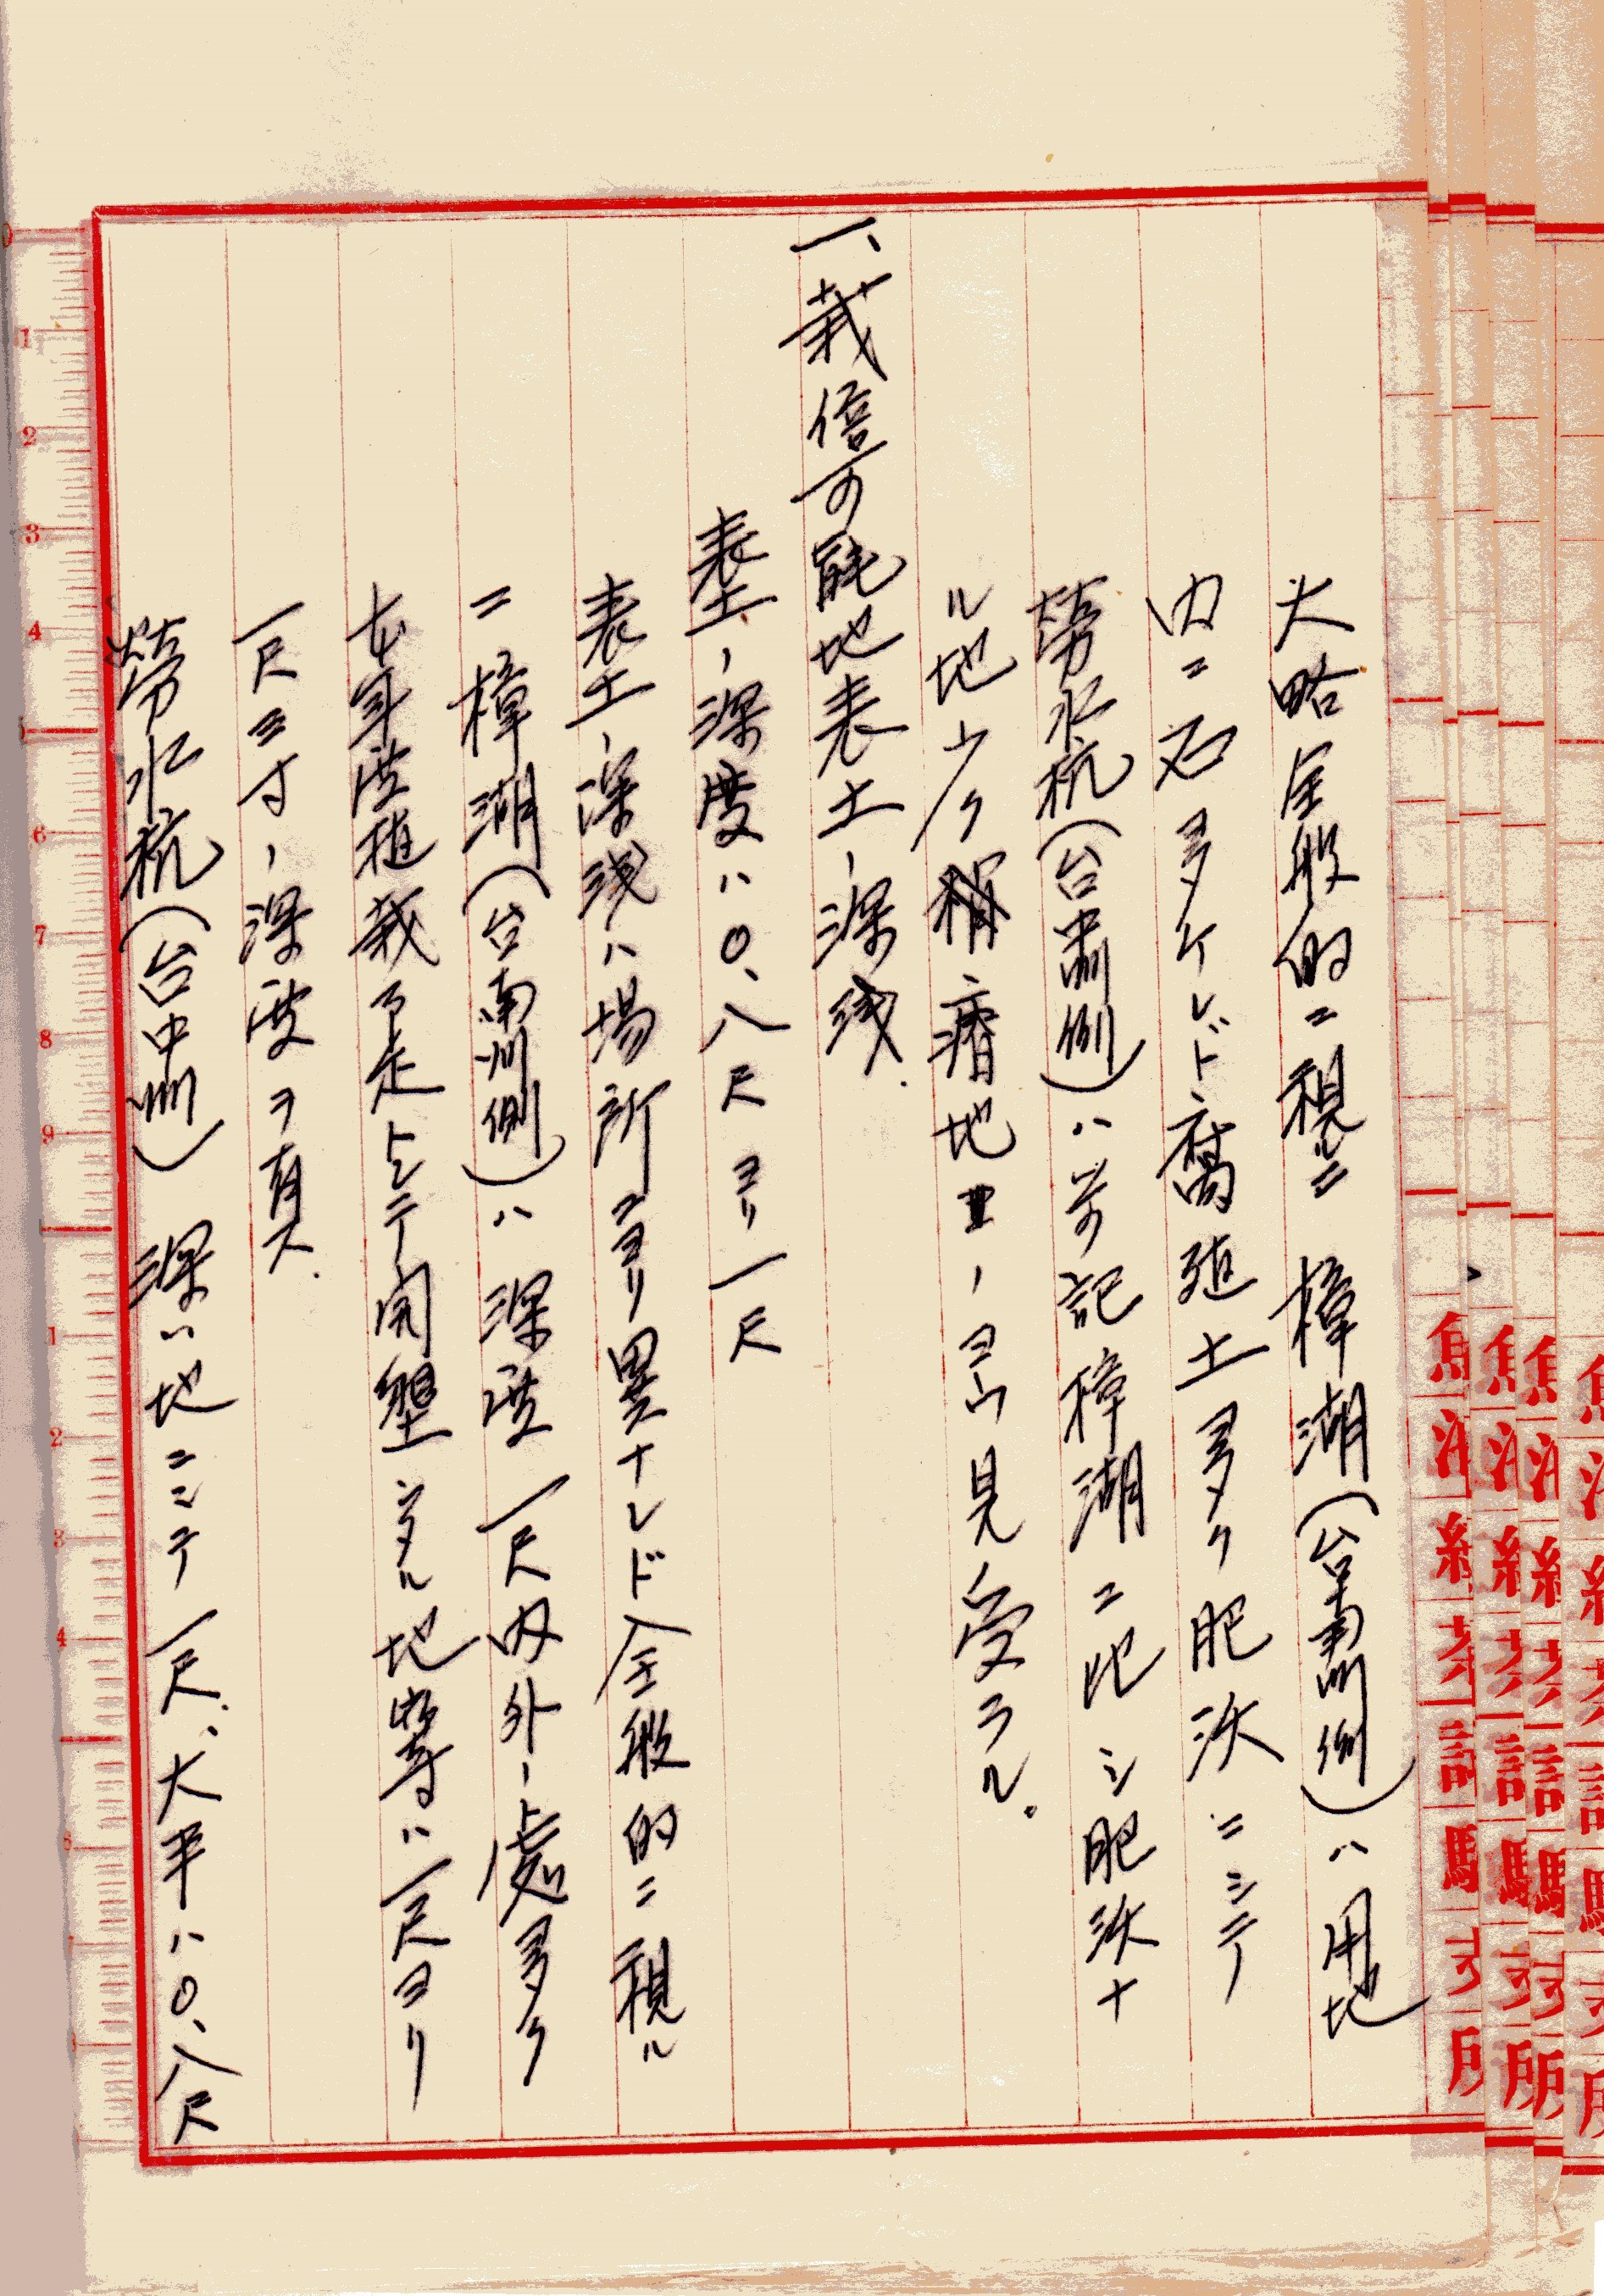 大略全般的ニ視ルニ 樟湖(台南州側)ハ用地
内ニ石多ケレド、腐植土多ク肥沃ニシテ
勞水杭(台中州側)ハ前記樟湖ニ比シ肥沃ナ
ル地少ク 瘠地ノヨウ見受ラル.
一、栽倍可能地表土ノ深浅.
表土ノ深度ハ〇、八尺ヨリ一尺
表土ノ深浅ハ場所ニヨリ異ナレド全般的ニ視ル
ニ樟湖(台南州側)ハ深度一尺内外ノ處多ク
本年度植栽予定トシテ開墾シタル地等ハ一尺ヨリ
一尺三寸ノ深度ヲ有ス.
勞水杭(台中州) 深い地ニシテ一尺、大半ハ〇、八尺
魚池紅茶試驗支所